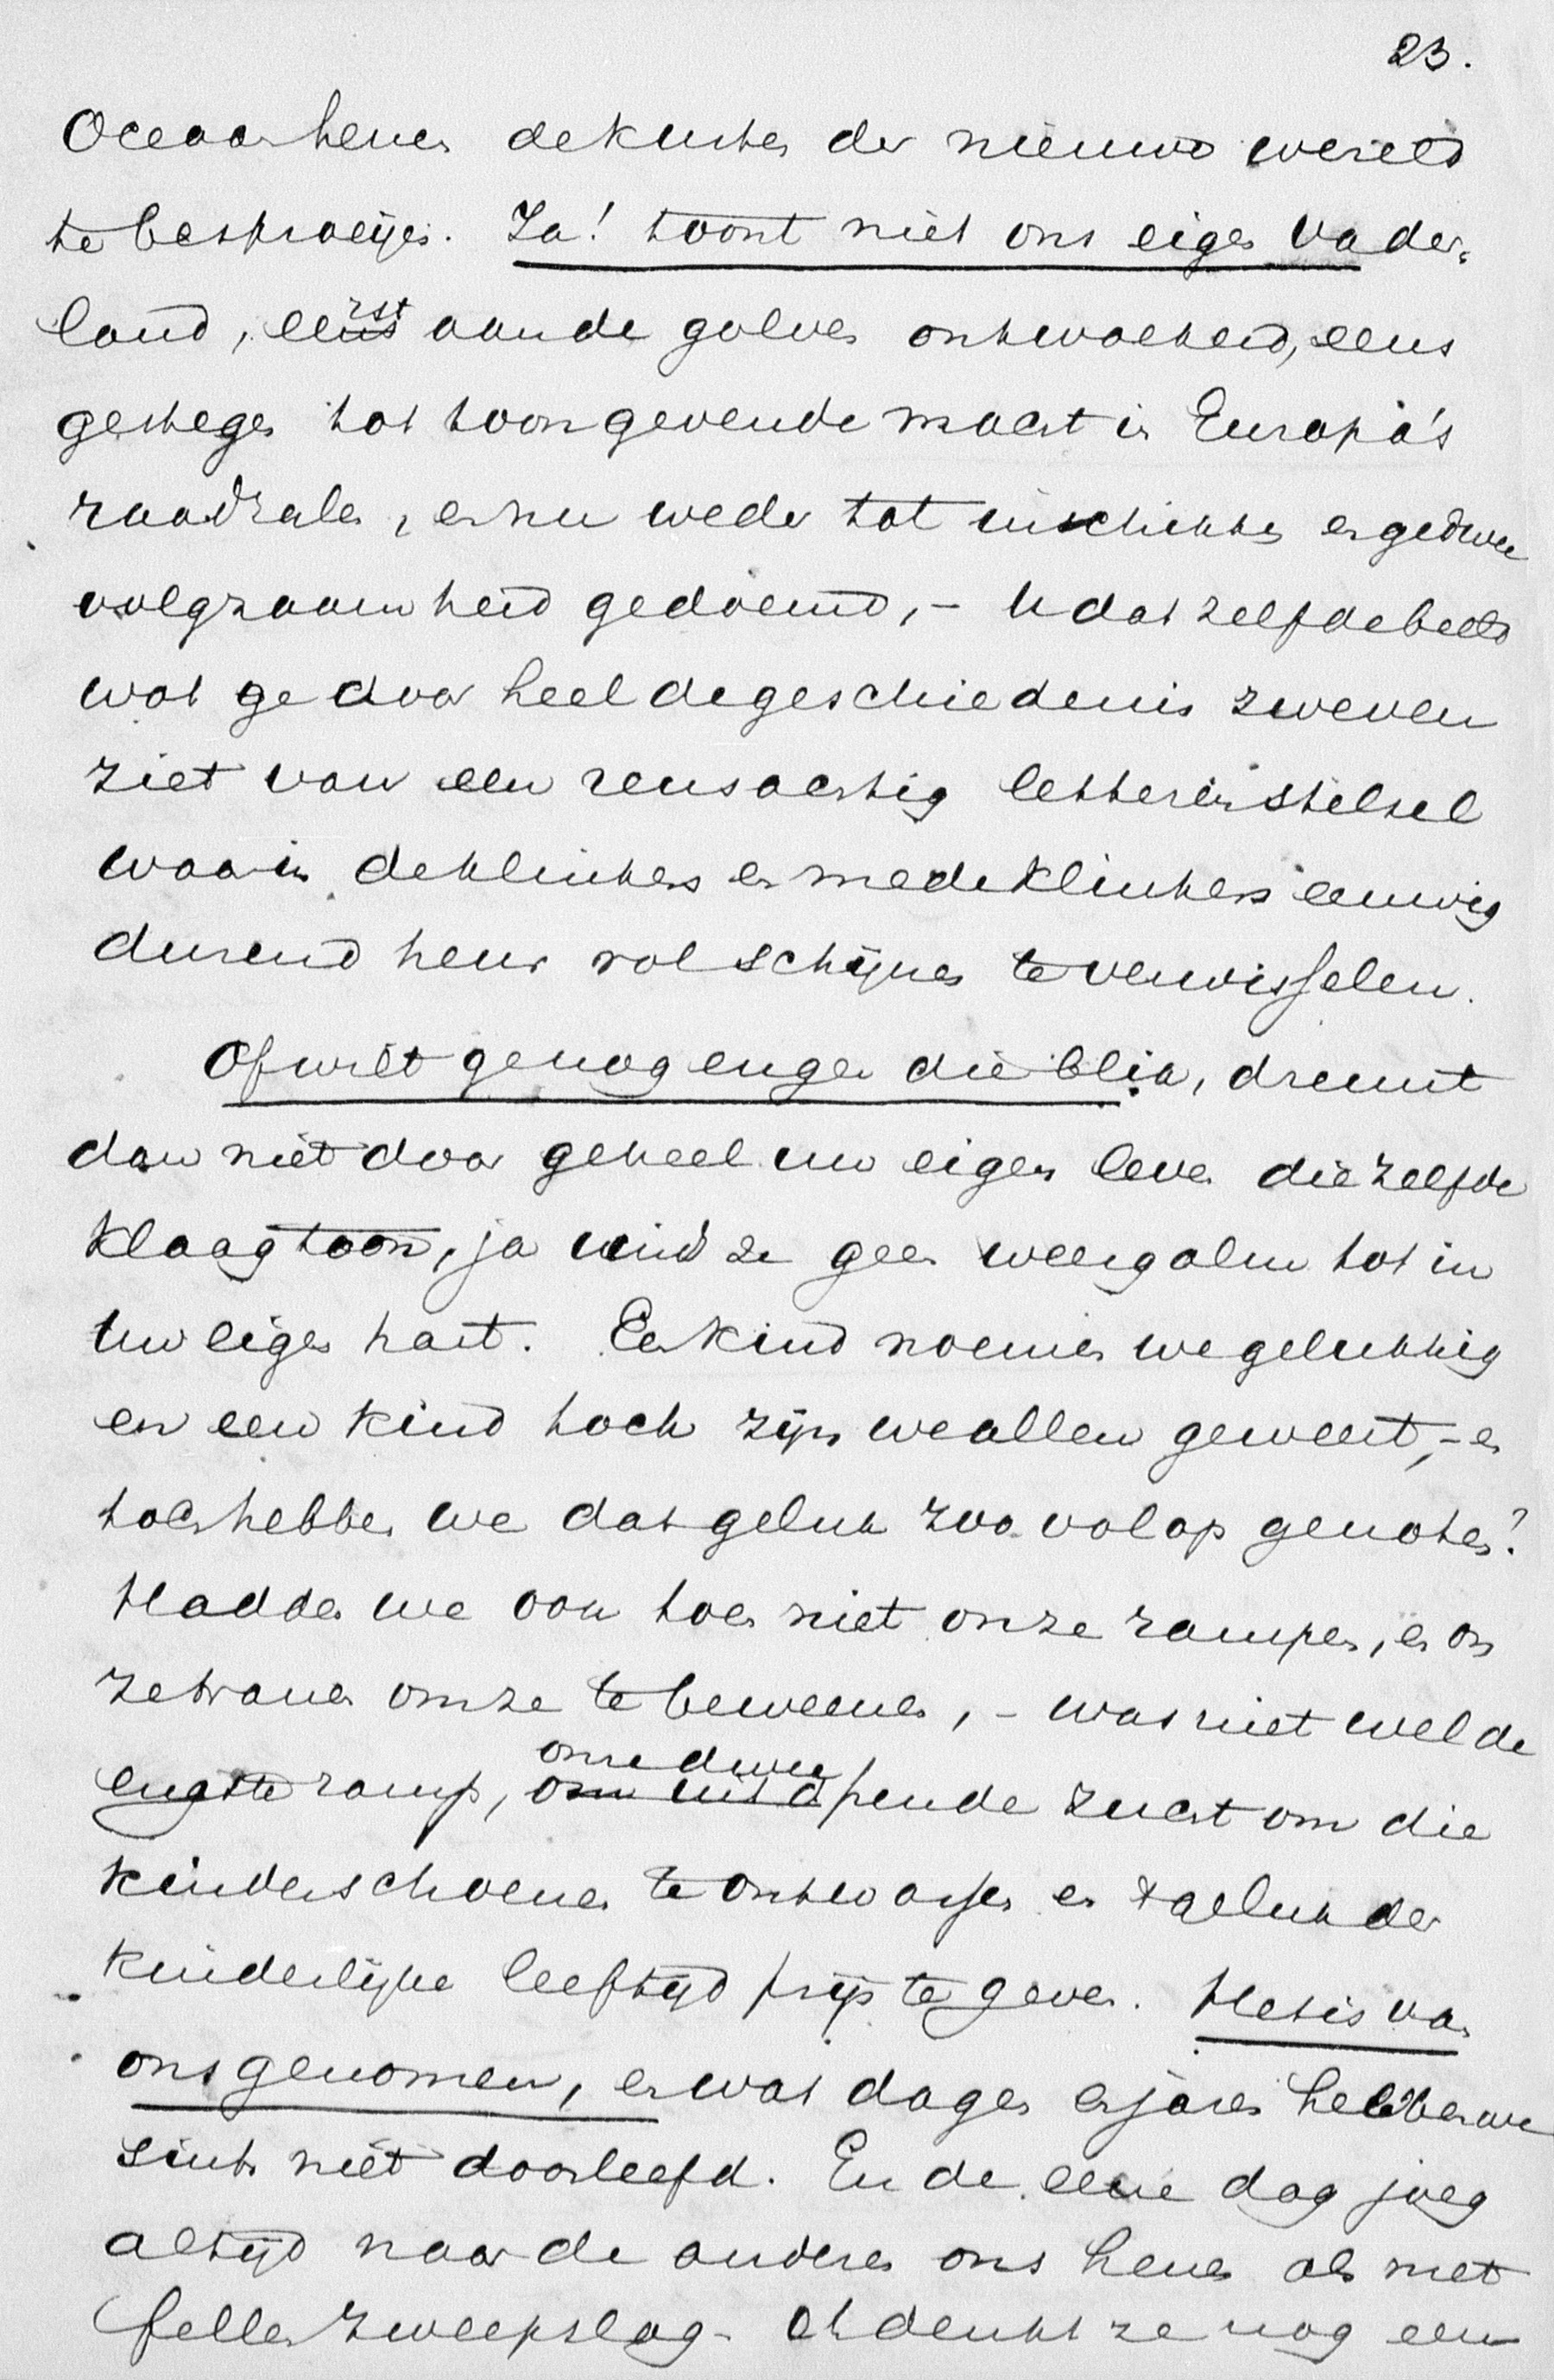 23.
Oceaan henen de kusten der nieuwe wereld
te besproeijen. Ja! toont niet ons eigen vader-
land, eerst aan de golven ontwoekerd, eens
gestegen tot toongevende macht in Europa's
raadzalen, en nu weder tot inschikken en gedwee
volgzaamheid gedoemd, – U dat zelfde beeld
wat ge door heel de geschiedenis zweven
ziet van een reusachtig letterenstelsel
waarin de klinkers en medeklinkers eeuwig
durend heur rol schijnen te verwisselen.
Of wilt ge nog enger die blik, dreunt
dan niet door geheel uw eigen leven die zelfde
klaagtoon, ja vind ze geen weergalm tot in
uw eigen hart. Een kind noemen we gelukkig
en een kind toch zijn we allen geweest, – en
toch hebben we dat geluk zoo volop genoten?
Hadden we ook toen niet onze rampen, en on
ze tranen om ze te beweenen, – was niet wel de
engste ramp, onze dwee pende zucht om die
kinderschoenen te ontwassen en 't geluk der
kinderlijke leeftijd prijs te geven. Het is van
ons genomen, en wat dagen en jaren hebben we
sints niet doorleefd. En de eene dag joeg
altijd naar de andere ons henen als met
felle zweepslag – Och denkt ze nog een